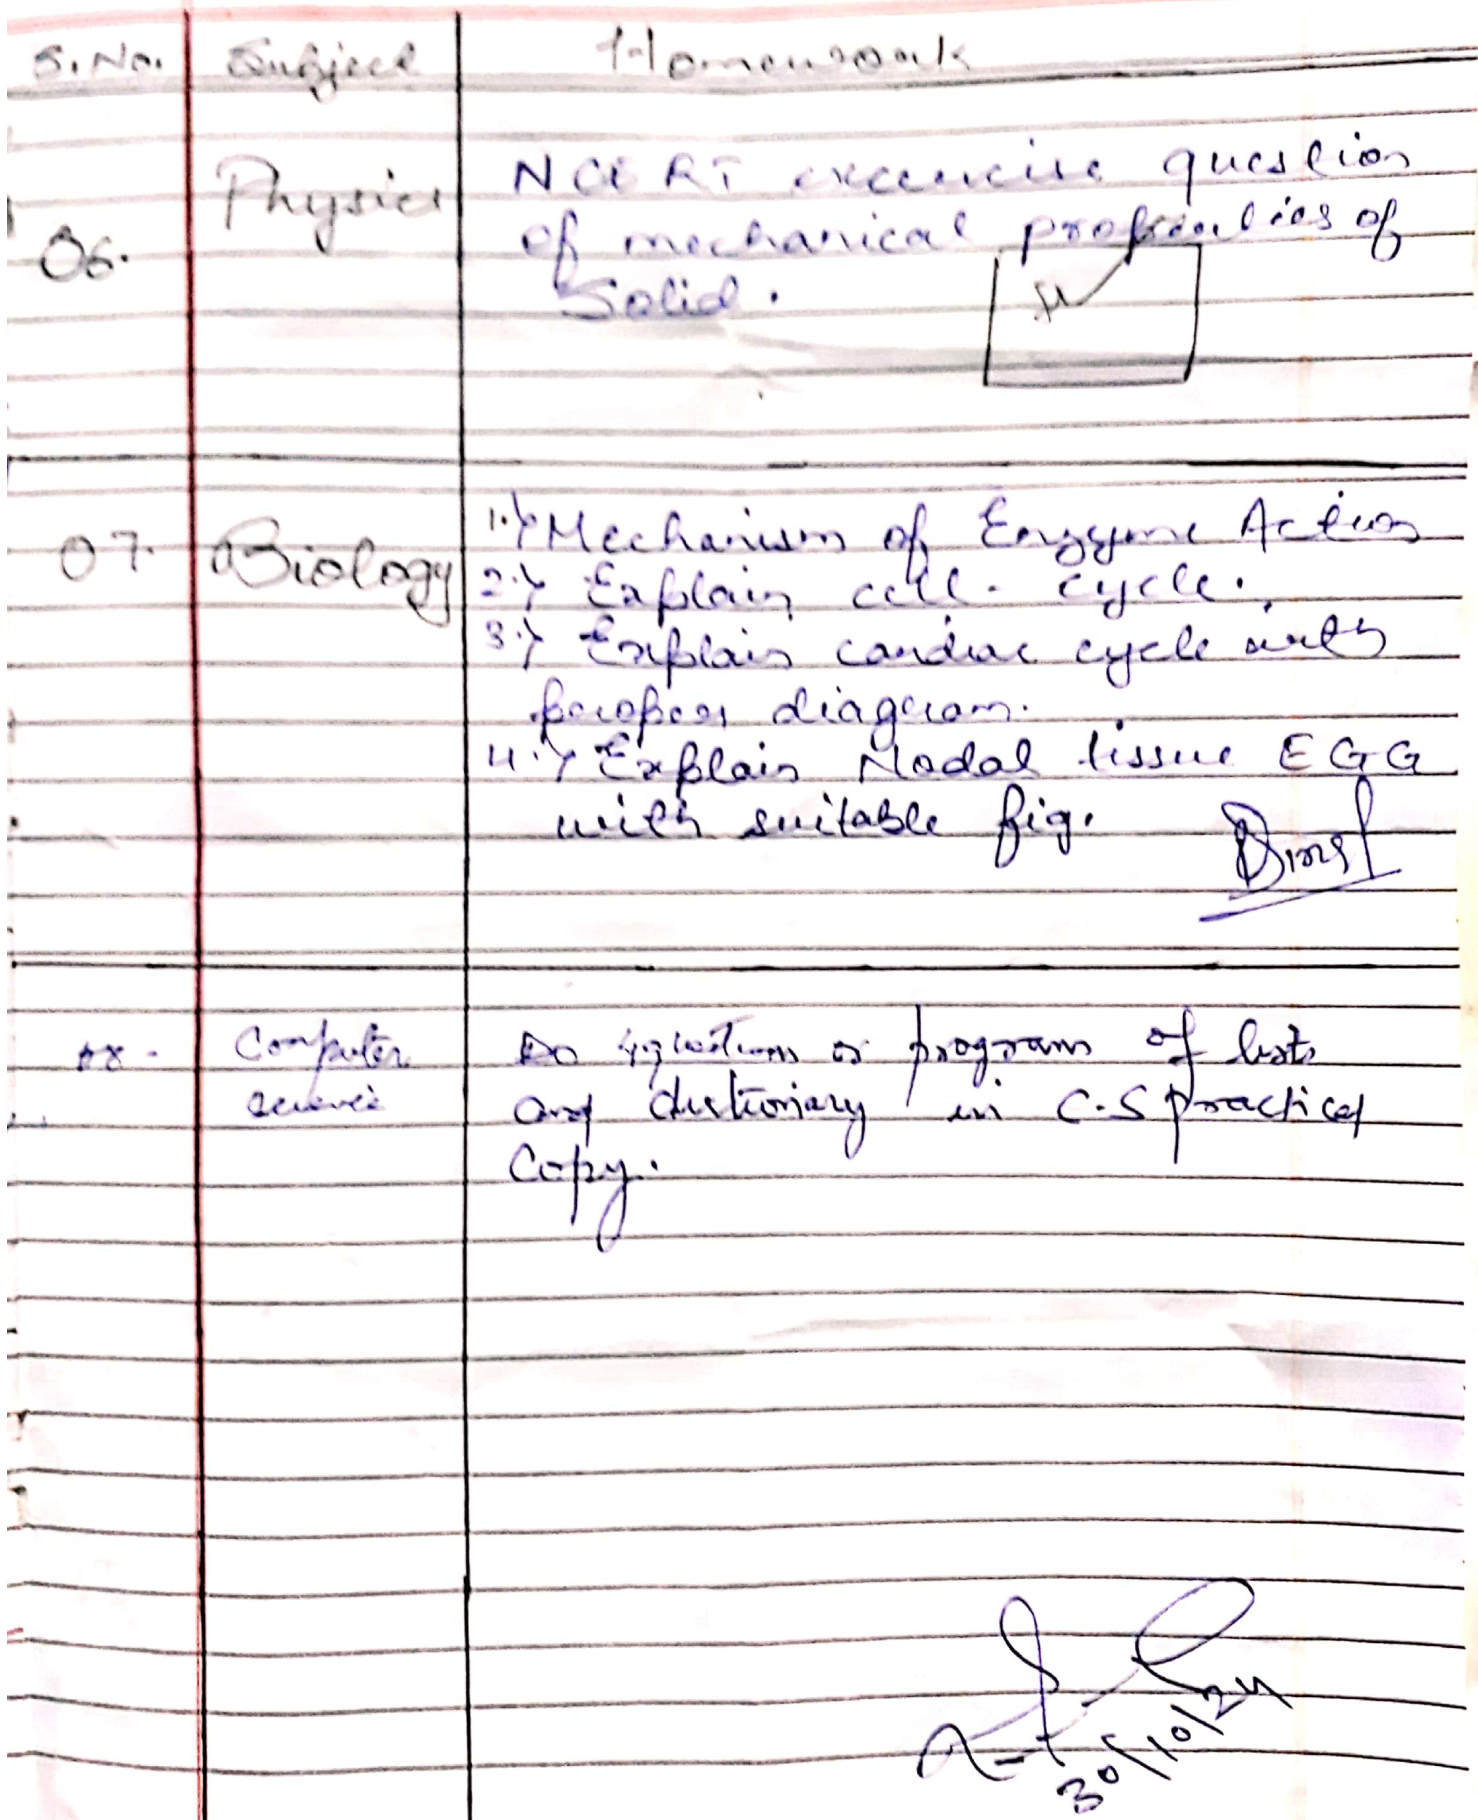 S.No. Subject Homework
Physics NCERT excercise question
06. of mechanical properties of
Solid.
07. Biology 1.} Mechanism of Enzyme Action
2.} Explain cell. cycle.
3.} Explain cardiac cycle with
proper diagram.
4.} Explain Nodal tissue EGG
with suitable fig.
08. Computer Do questions or program of lists
science and dictionary in C.S practical
Copy.
30/10/24